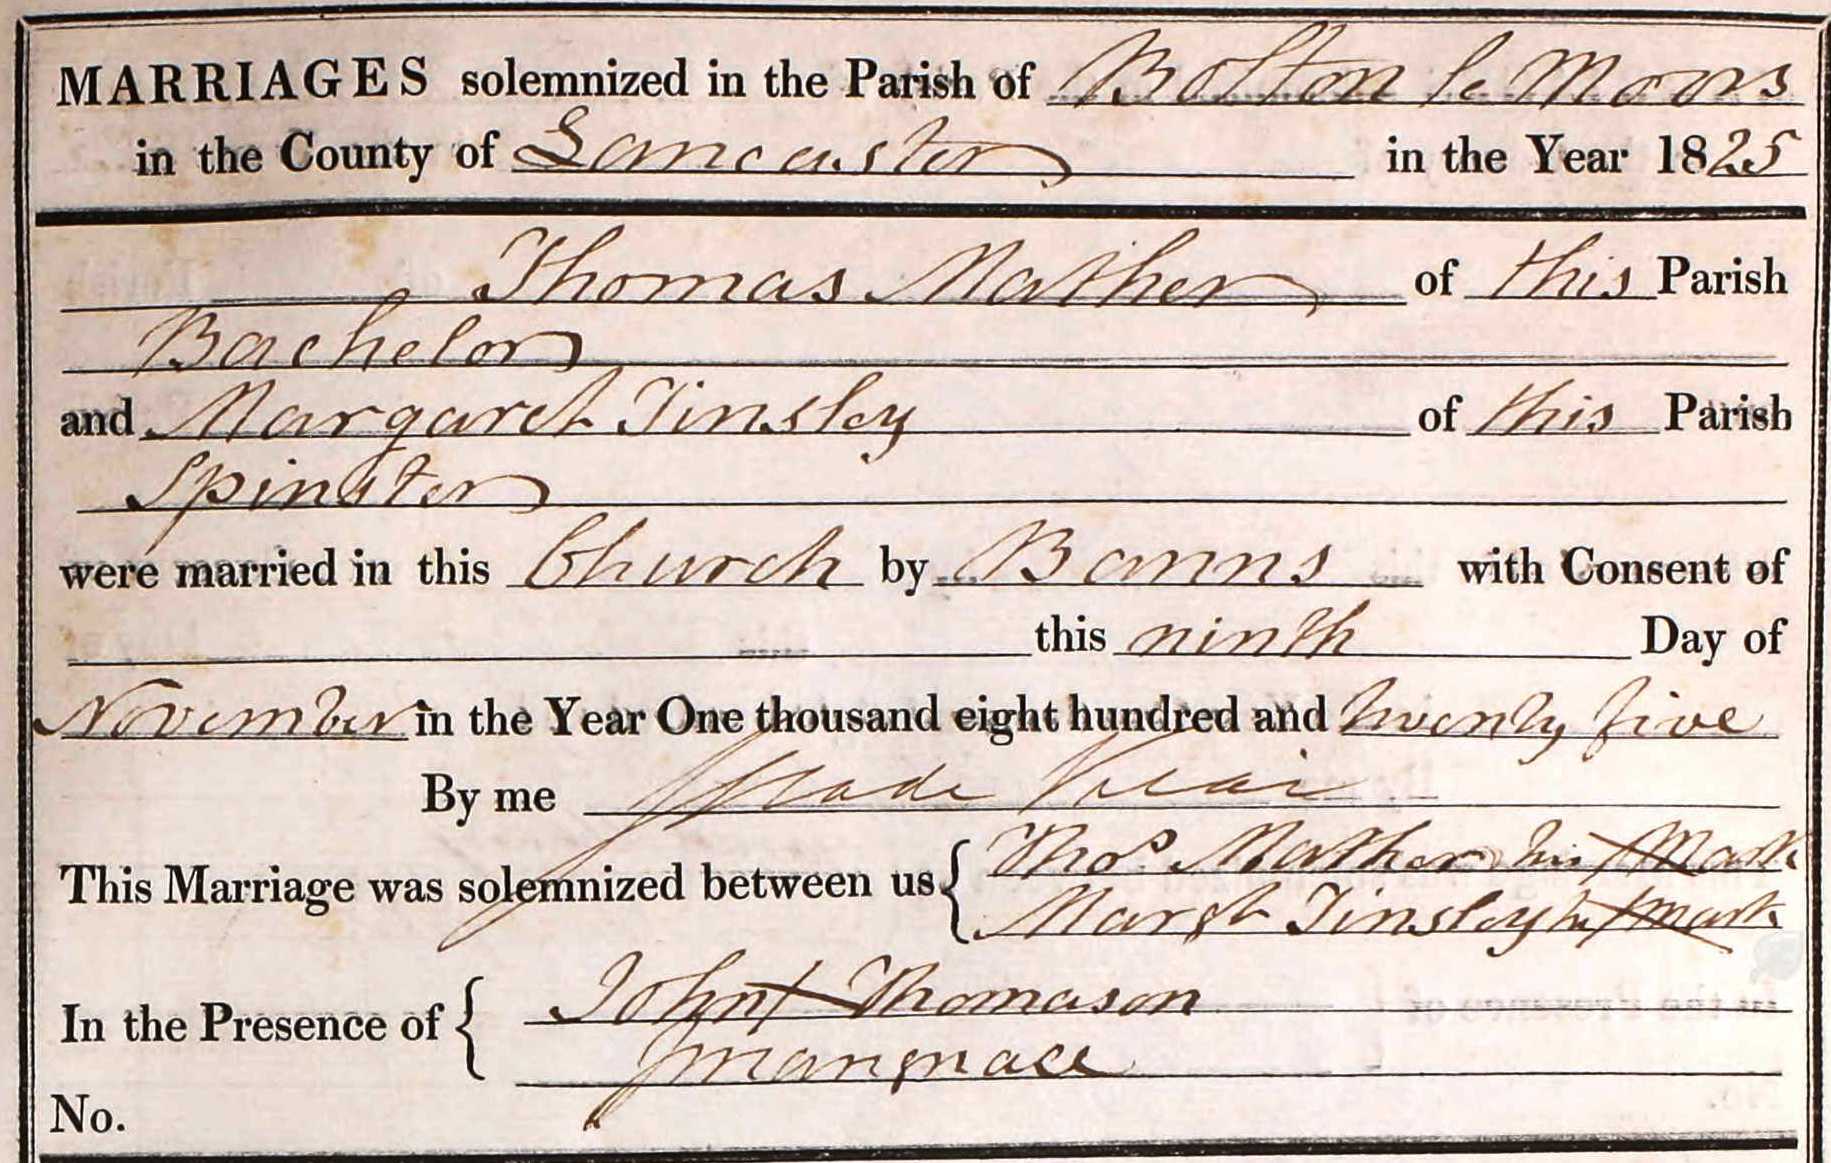 MARRIAGES solemnized in the Parish of Bolton le Moors
in the County of Lancaster in the Year 1825
Thomas Mather of this Parish
Bachelor
and Margaret Tinsley of this Parish
Spinster
were married in this Church by Banns with Consent of
this ninth Day of
November in the Year One thousand eight hundred and twenty five
By me Slade Vicar
This Marriage was solemnized between us { Thos Mather his X Mark
Margt Tinsley her X Mark
In the Presence of { John X Thomason
No.